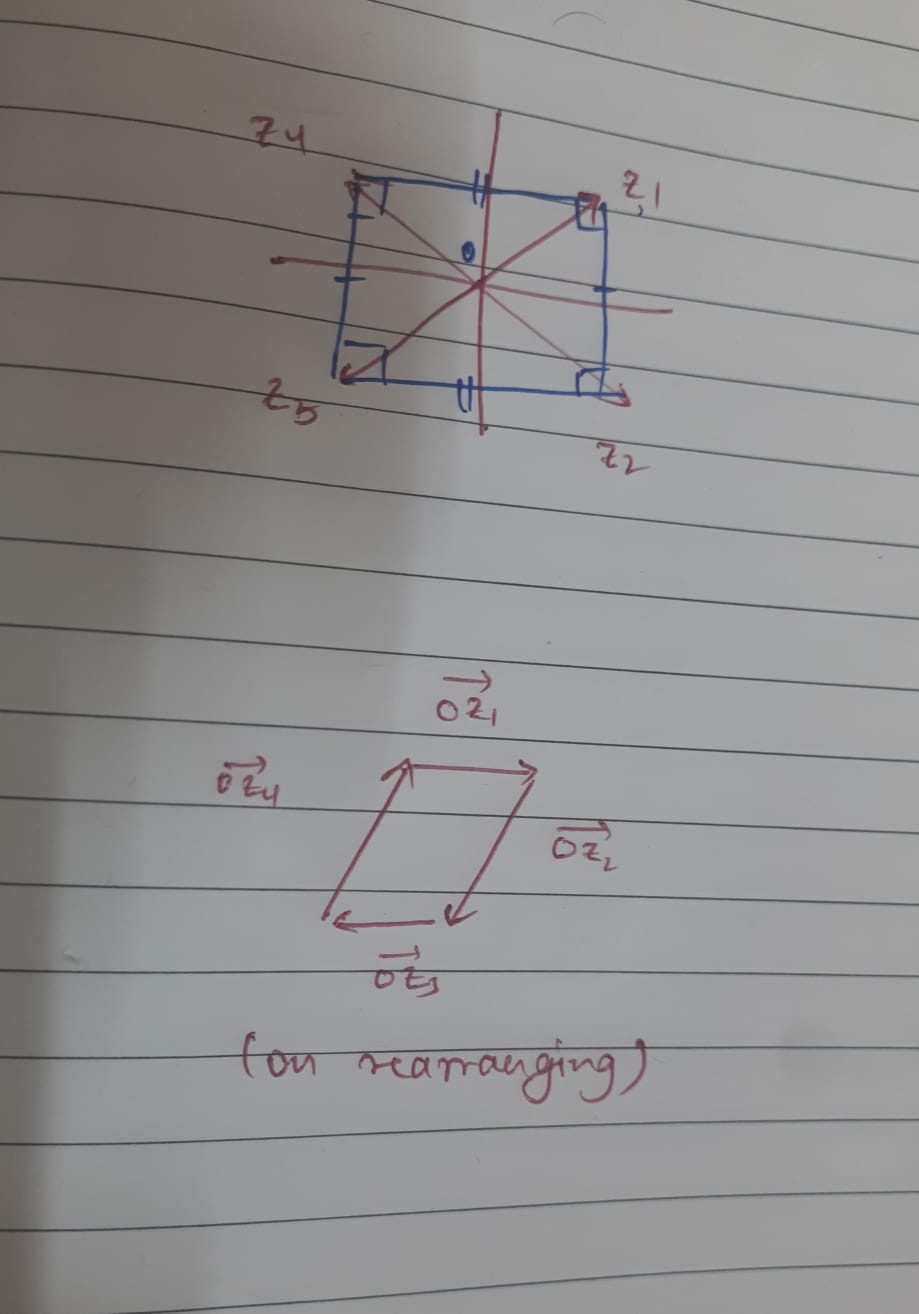 z4
z1
0
z3
z2
→
oz1
→
oz4
→
oz2
→
oz3
(on rearranging)